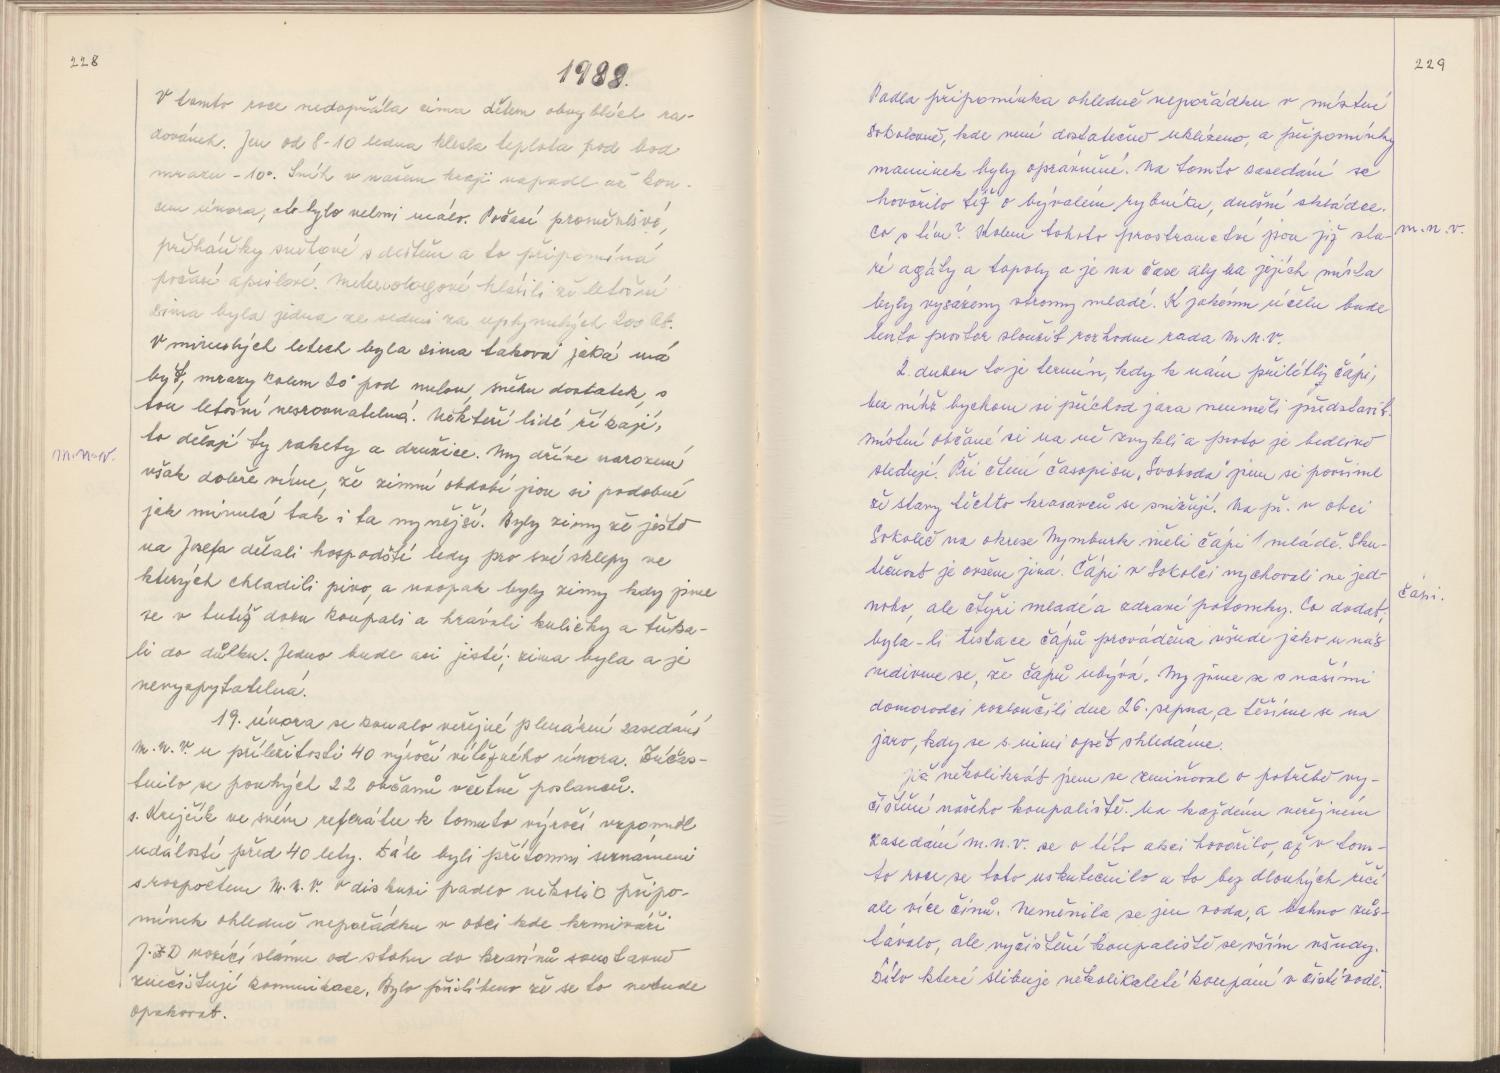 228
1988.
V tomto roce nedopřála zima dětem obvyklých ra-
dovánek. Jen od 8-10 ledna klesla teplota pod bod
mrazu -10°. Sníh v našem kraji napadl až kon-
cem února, ale bylo velmi málo. Počasí proměnlivé,
přeháňky sněhové s deštěm a to připomíná
počasí aprílové. Meteorologové hlásili že letošní
zima byla jedna ze sedmi za uplynulých 200 let.
V minulých letech byla zima taková jaká má
být, mrazy kolem 20° pod nulou, sněhu dostatek, s
tou letošní nesrovnatelná. Někteří lidé říkají,
to dělají ty rakety a družice. My dříve narození
však dobře víme, že zimní období jsou si podobné
jak minulá tak i ta nynější. Byly zimy že ještě
na Josefa dělali hospodští ledy pro své sklepy ve
kterých chladili pivo, a naopak byly zimy kdy jsme
se v tutéž dobu koupali a hráváli kuličky a ťuka-
li do důlku. Jedno bude asi jisté; zima byla a je
nevyzpytatelná.
19. února se konalo veřejné plenární zasedání
M.N.V. u příležitosti 40 výročí vítězného února. Zúčas-
tnilo se pouhých 22 občanů včetně poslanců.
s. Krejčík ve svém referátu k tomuto výročí vzpomněl
událostí před 40 lety. Dále byli přítomni seznámeni
s rozpočtem M.N.V. V diskuzi padlo několik přípo-
mínek ohledně nepořádku v obci kde krmiváři
J.Z.D vozící slámu od stohu do kravínů soustavně
znečisťují komunikace. Bylo přislíbeno že se to nebude
opakovat.
m.n.v.
229
Padla připomínka ohledně nepořádku v místní
Sokolovně, kde není dostatečně uklízeno, a připomínky
maminek byly oprávněné. Na tomto zasedání se
hovořilo též o bývalém rybníku, dnešní skládce.
Co s tím? Kolem tohoto prostranství jsou již sta-
ré agáty a topoly a je na čase aby na jejich místa
byly vysázeny stromy mladé. K jakému účelu bude
tento prostor sloužit rozhodne rada M.N.V.
2. duben to je termín, kdy k nám přilétly čápi,
bez nihž bychom si příchod jara neuměli představit.
Místní občané si na ně zvykli a proto je bedlivě
sledují. Při čtení časopisu "Svoboda" jsme si povšimli
že stavy těchto krasavců se snižují. Na př. v obci
Sokoleč na okrese Nymburk měli čápi 1 mládě. Sku-
tečnost je ovšem jiná. Čápi v Sokolči vychovali ne jed-
noho, ale čtyři mladé a zdravé potomky. Co dodat,
byla-li testace čápů prováděna všude jako u nás
nedivme se, že čápů ubývá. My jsme se s našimi
domorodci rozloučili dne 26. srpna, a těšíme se na
jaro, kdy se s nimi opět shledáme.
Již několikrát jsem se zmiňoval o potřebě vy-
čištění našeho koupaliště. Na každém veřejném
zasedání m.n.v. se o této akci hovořilo, až v tom-
to roce se toto uskutečnilo a to bez dlouhých řečí
ale více činů. Neměnila se jen voda, a bahno zůs-
távalo, ale vyčištění koupaliště se vším všudy.
Dílo které slibuje několikaleté koupání v čisté vodě.
m.n.v.
Čápi.